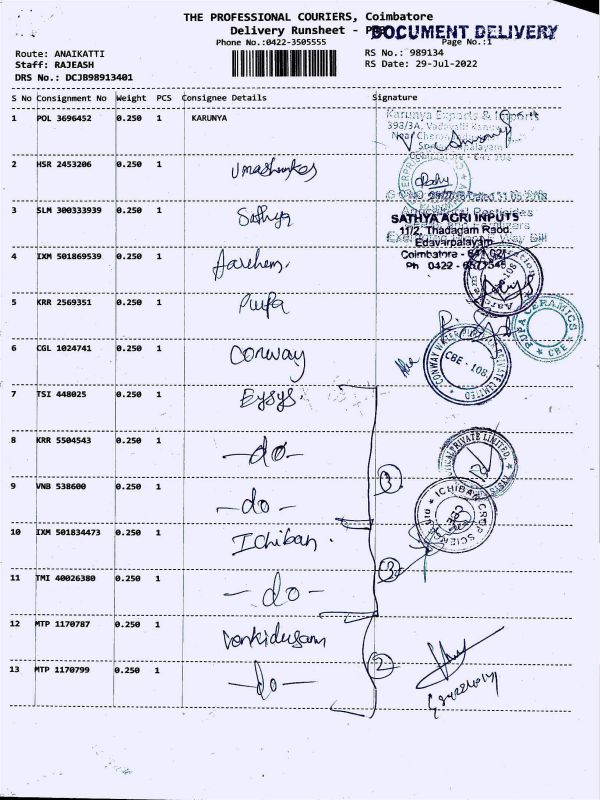 THE PROFESSIONAL COURIERS, Coimbatore
Delivery Runsheet -
DOCUMENT DELIVERY
Phone No.:0422-3505555
Page No.:1
Route: ANAIKATTI
Staff: RAJEASH
DRS No.: DCJB98913401
RS No.: 989134
RS Date: 29-Jul-2022
S No Consignment No Weight PCS Consignee Details Signature
1 POL 3696452 0.250 1 KARUNYA
Karunya Exports & Imports
398/3A,
Coimbatore - 641 108
2 HSR 2453206 0.250 1 Umashankar
3 SLM 300333939 0.250 1 Sathya
SATHYA AGRI INPUTS
11/2, Thadagam Road,
Edayarpalayam
Coimbatore - 641 025
Ph 0422 -
4 IXM 501869539 0.250 1 Aarchem.
5 KRR 2569351 0.250 1 Rupa
RUPA CERAMICS
CBE
6 CGL 1024741 0.250 1 Conway
CBE - 108.
7 TSI 448025 0.250 1 Eysys.
8 KRR 5504543 0.250 1 -do-
9 VNB 538600 0.250 1 -do-
3
10 IXM 501834473 0.250 1 Ichiban.
ICHIBAN CROP SCIENCE
CBE
11 TMI 40026380 0.250 1 -do-
3
12 MTP 1170787 0.250 1 Venkidusam
13 MTP 1170799 0.250 1 -do-
2